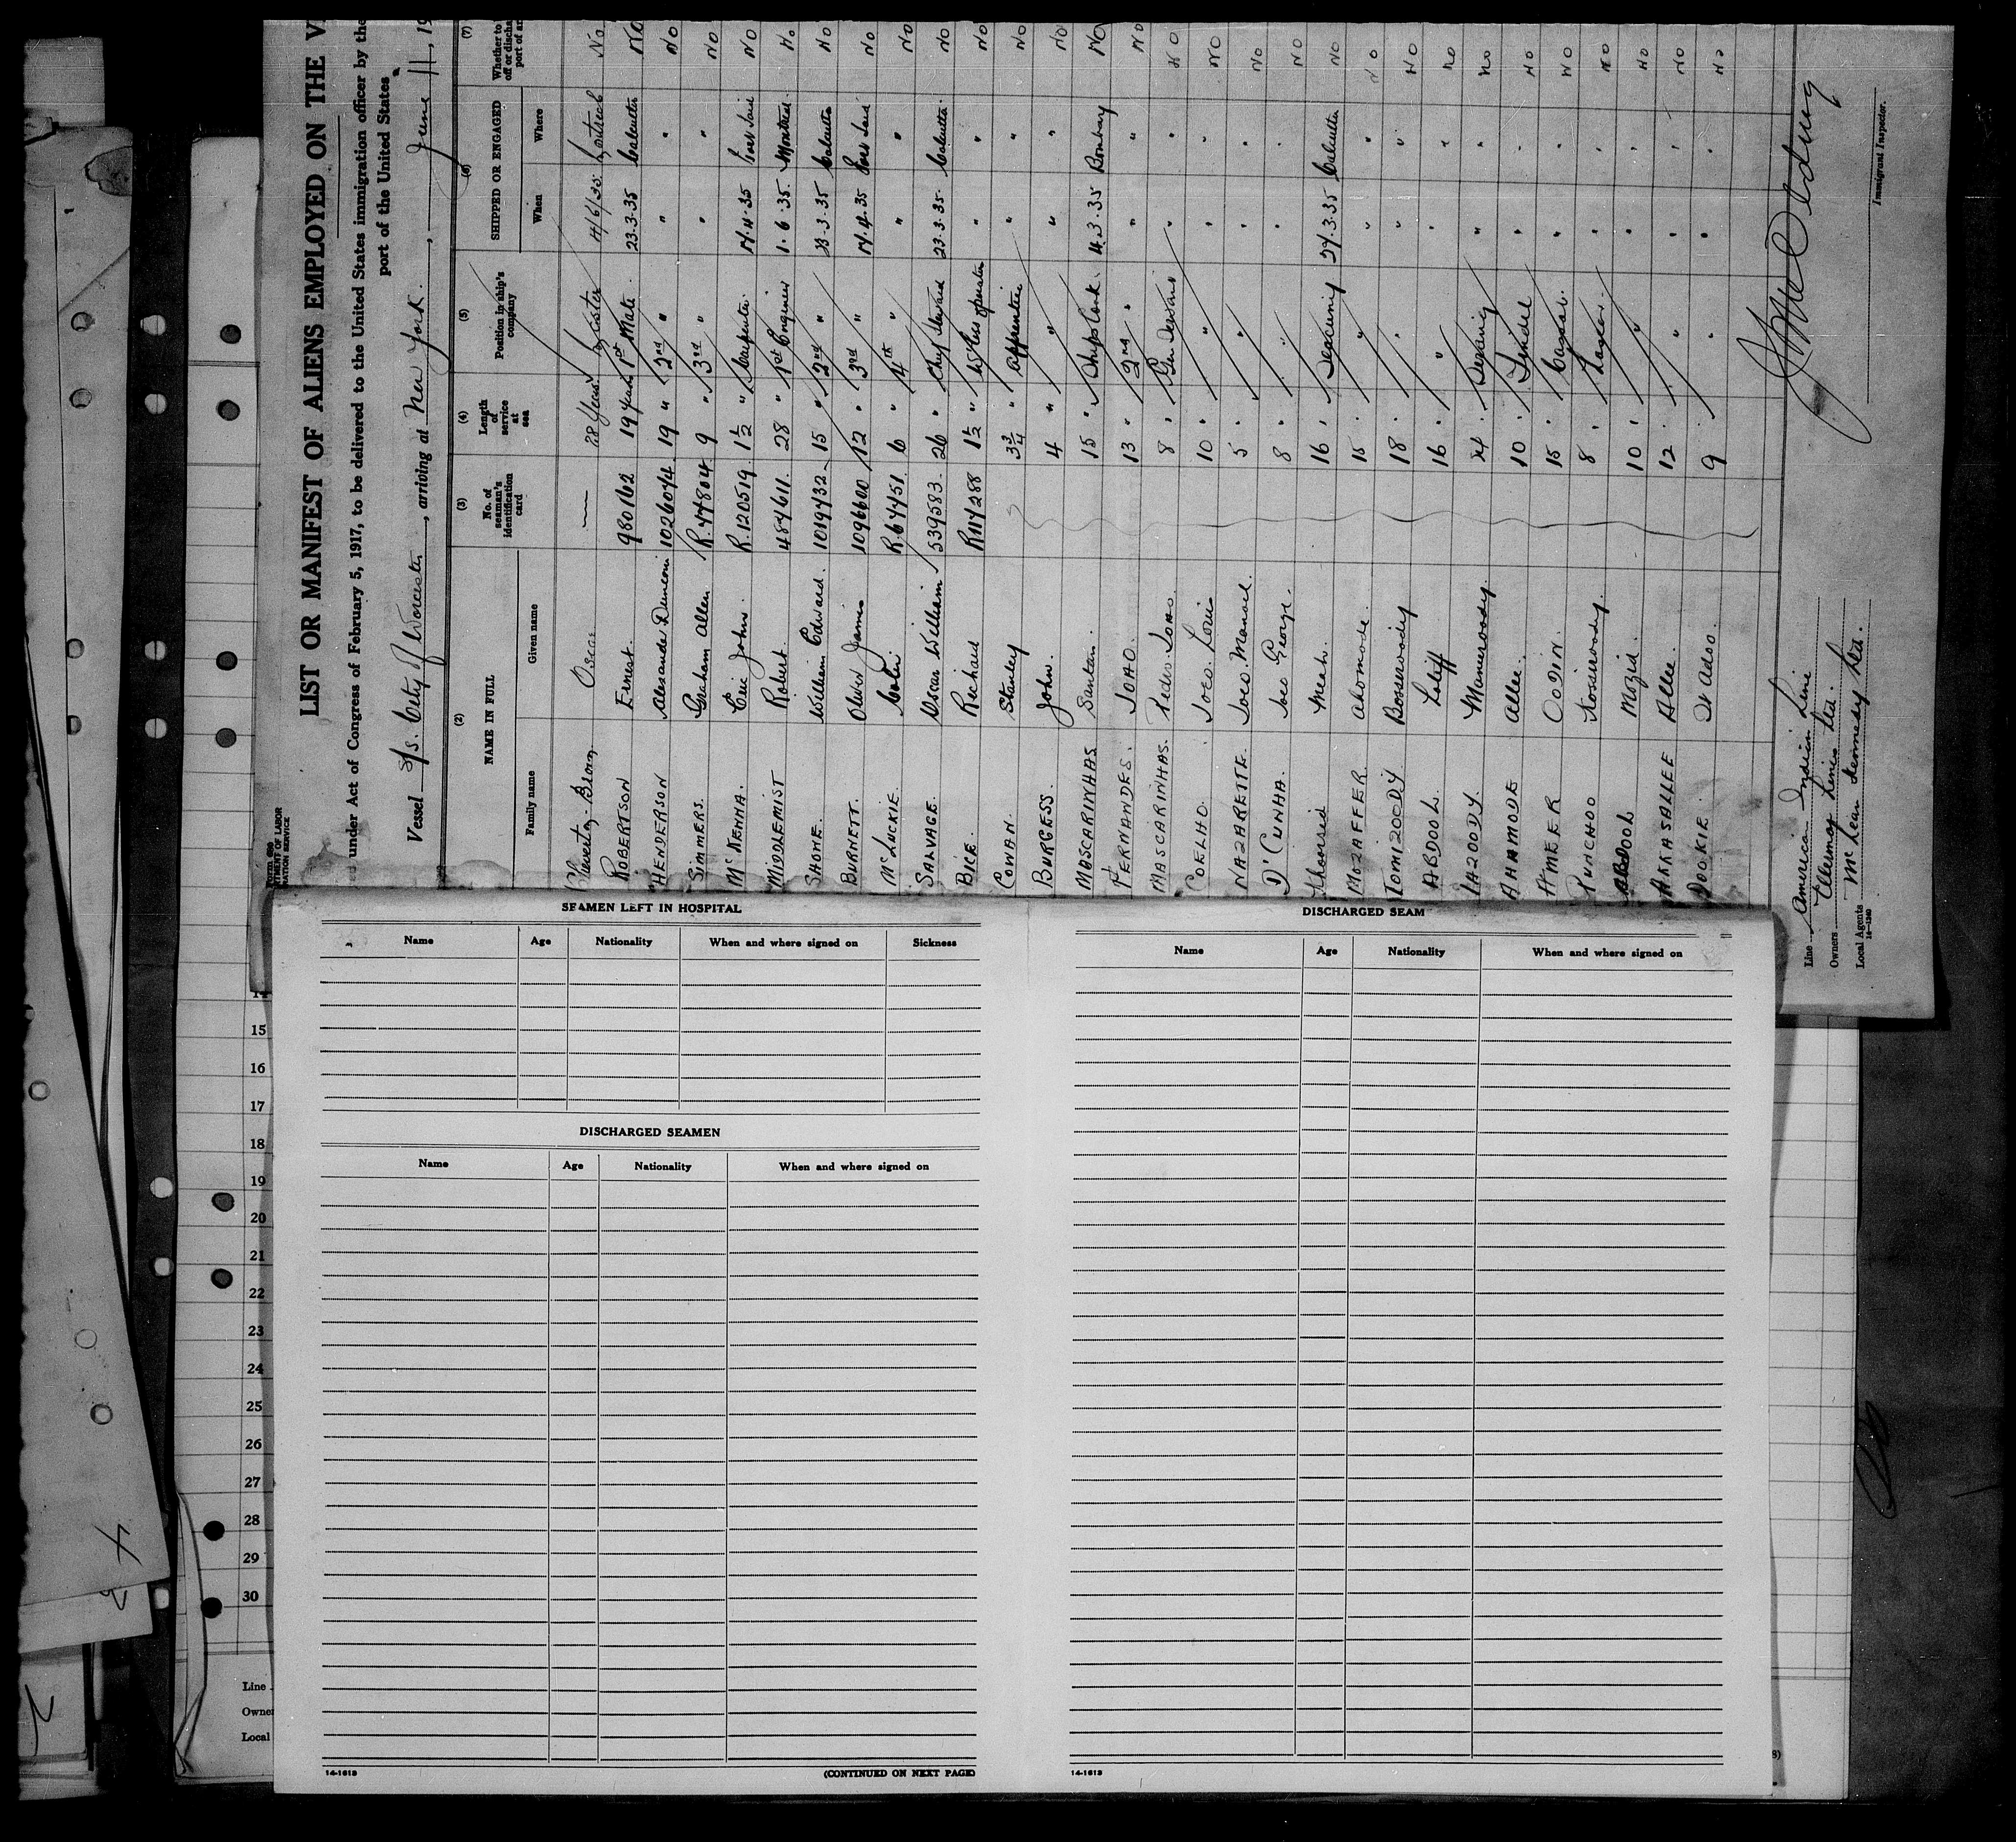 Form 689
LIST OR MANIFEST OF ALIENS EMPLOYED ON THE V
under Act of Congress of February 5, 1917, to be delivered to the United States immigration officer by the
port of the United States
Vessel S/S. City of Worcester, arriving at New York., June 11, 19
(2) (3) (4) (5) (6) (7)
NAME IN FULL No. of seaman's identification card Length of service at sea Position in ship's company SHIPPED OR ENGAGED Whether to
Family name Given name When Where
Oscar — 28 Years 4/6/35 No
ROBERTSON Ernest. 980162 19 Years 1st Mate. 23.3.35 Calcutta No
HENDERSON Alexander Duncan 1026074 19 " 2nd " " " No
SIMMERS. Graham Allen R.44804 9 " 3rd " " " No
McKENNA. Eric John. R.120519 1½ " Carpenter. 17.4.35 Port Said No
MIDDLEMIST Robert. 484611. 28 " 1st Engineer 1.6.35. Montreal. No
SHONE. William Edward. 1019432 15 " 2nd " 23.3.35 Calcutta No
BURNETT. James 1096600 12 " 3rd " 17.4.35 Port Said No
McLUCKIE. Colin R.64451. 6 " 4th " " " No
SALVAGE. Oscar William 539583. 26 " Chief Steward 23.3.35. Calcutta. No
BICE. Richard R114288 1½ " Wless Operator " " No
COWAN. Stanley 3¾ " Apprentice " " No
BURGESS. John. 4 " " " " No
MASCARINHAS Santan. 15 " Ships Cook. 4.3.35 Bombay No
FERNANDES. JOAO. 13 " 2nd " " " No
MASCARINHAS. Pedro Joao. 8 " Gen Servant " " No
COELHO. Joao Louis 10 " " " " No
NAZARETTE. Joao Manoel. 5 " " " " No
D'CUNHA. Joao George. 8 " " " " No
Khorsid Meah. 16 " Seacunny 27.3.35 Calcutta No
MOZAFFER. Ahomode. 15 " " " " No
TOMIZOODY Bosseeroody 18 " " " " No
ABDOOL. Lotiff 16 " " " " No
IAZOODY. Monuroody. 24 " Serang " " No
AHAMODE Allee. 10 " Tindel " " No
AMEER OODIN. 15 " Cassab. " " No
PUNCHOO Kosiseroody. 8 " Lascar. " " No
ABDOOL Mozid. 10 " " " " No
AKKASALLEE Allee. 12 " " " " No
DOOKIE. 9 " " " " No
Line American Indian Line
Owners Ellerman Lines Ltd.
Local Agents McLean Kennedy Ltd.
14—1240
Immigrant Inspector.
SEAMEN LEFT IN HOSPITAL
Name Age Nationality When and where signed on Sickness
DISCHARGED SEAMEN
Name Age Nationality When and where signed on
14-1613
(CONTINUED ON NEXT PAGE)
DISCHARGED SEAM
Name Age Nationality When and where signed on
14-1613
14
15
16
17
18
19
20
21
22
23
24
25
26
27
28
29
30
Line
Owne
Local